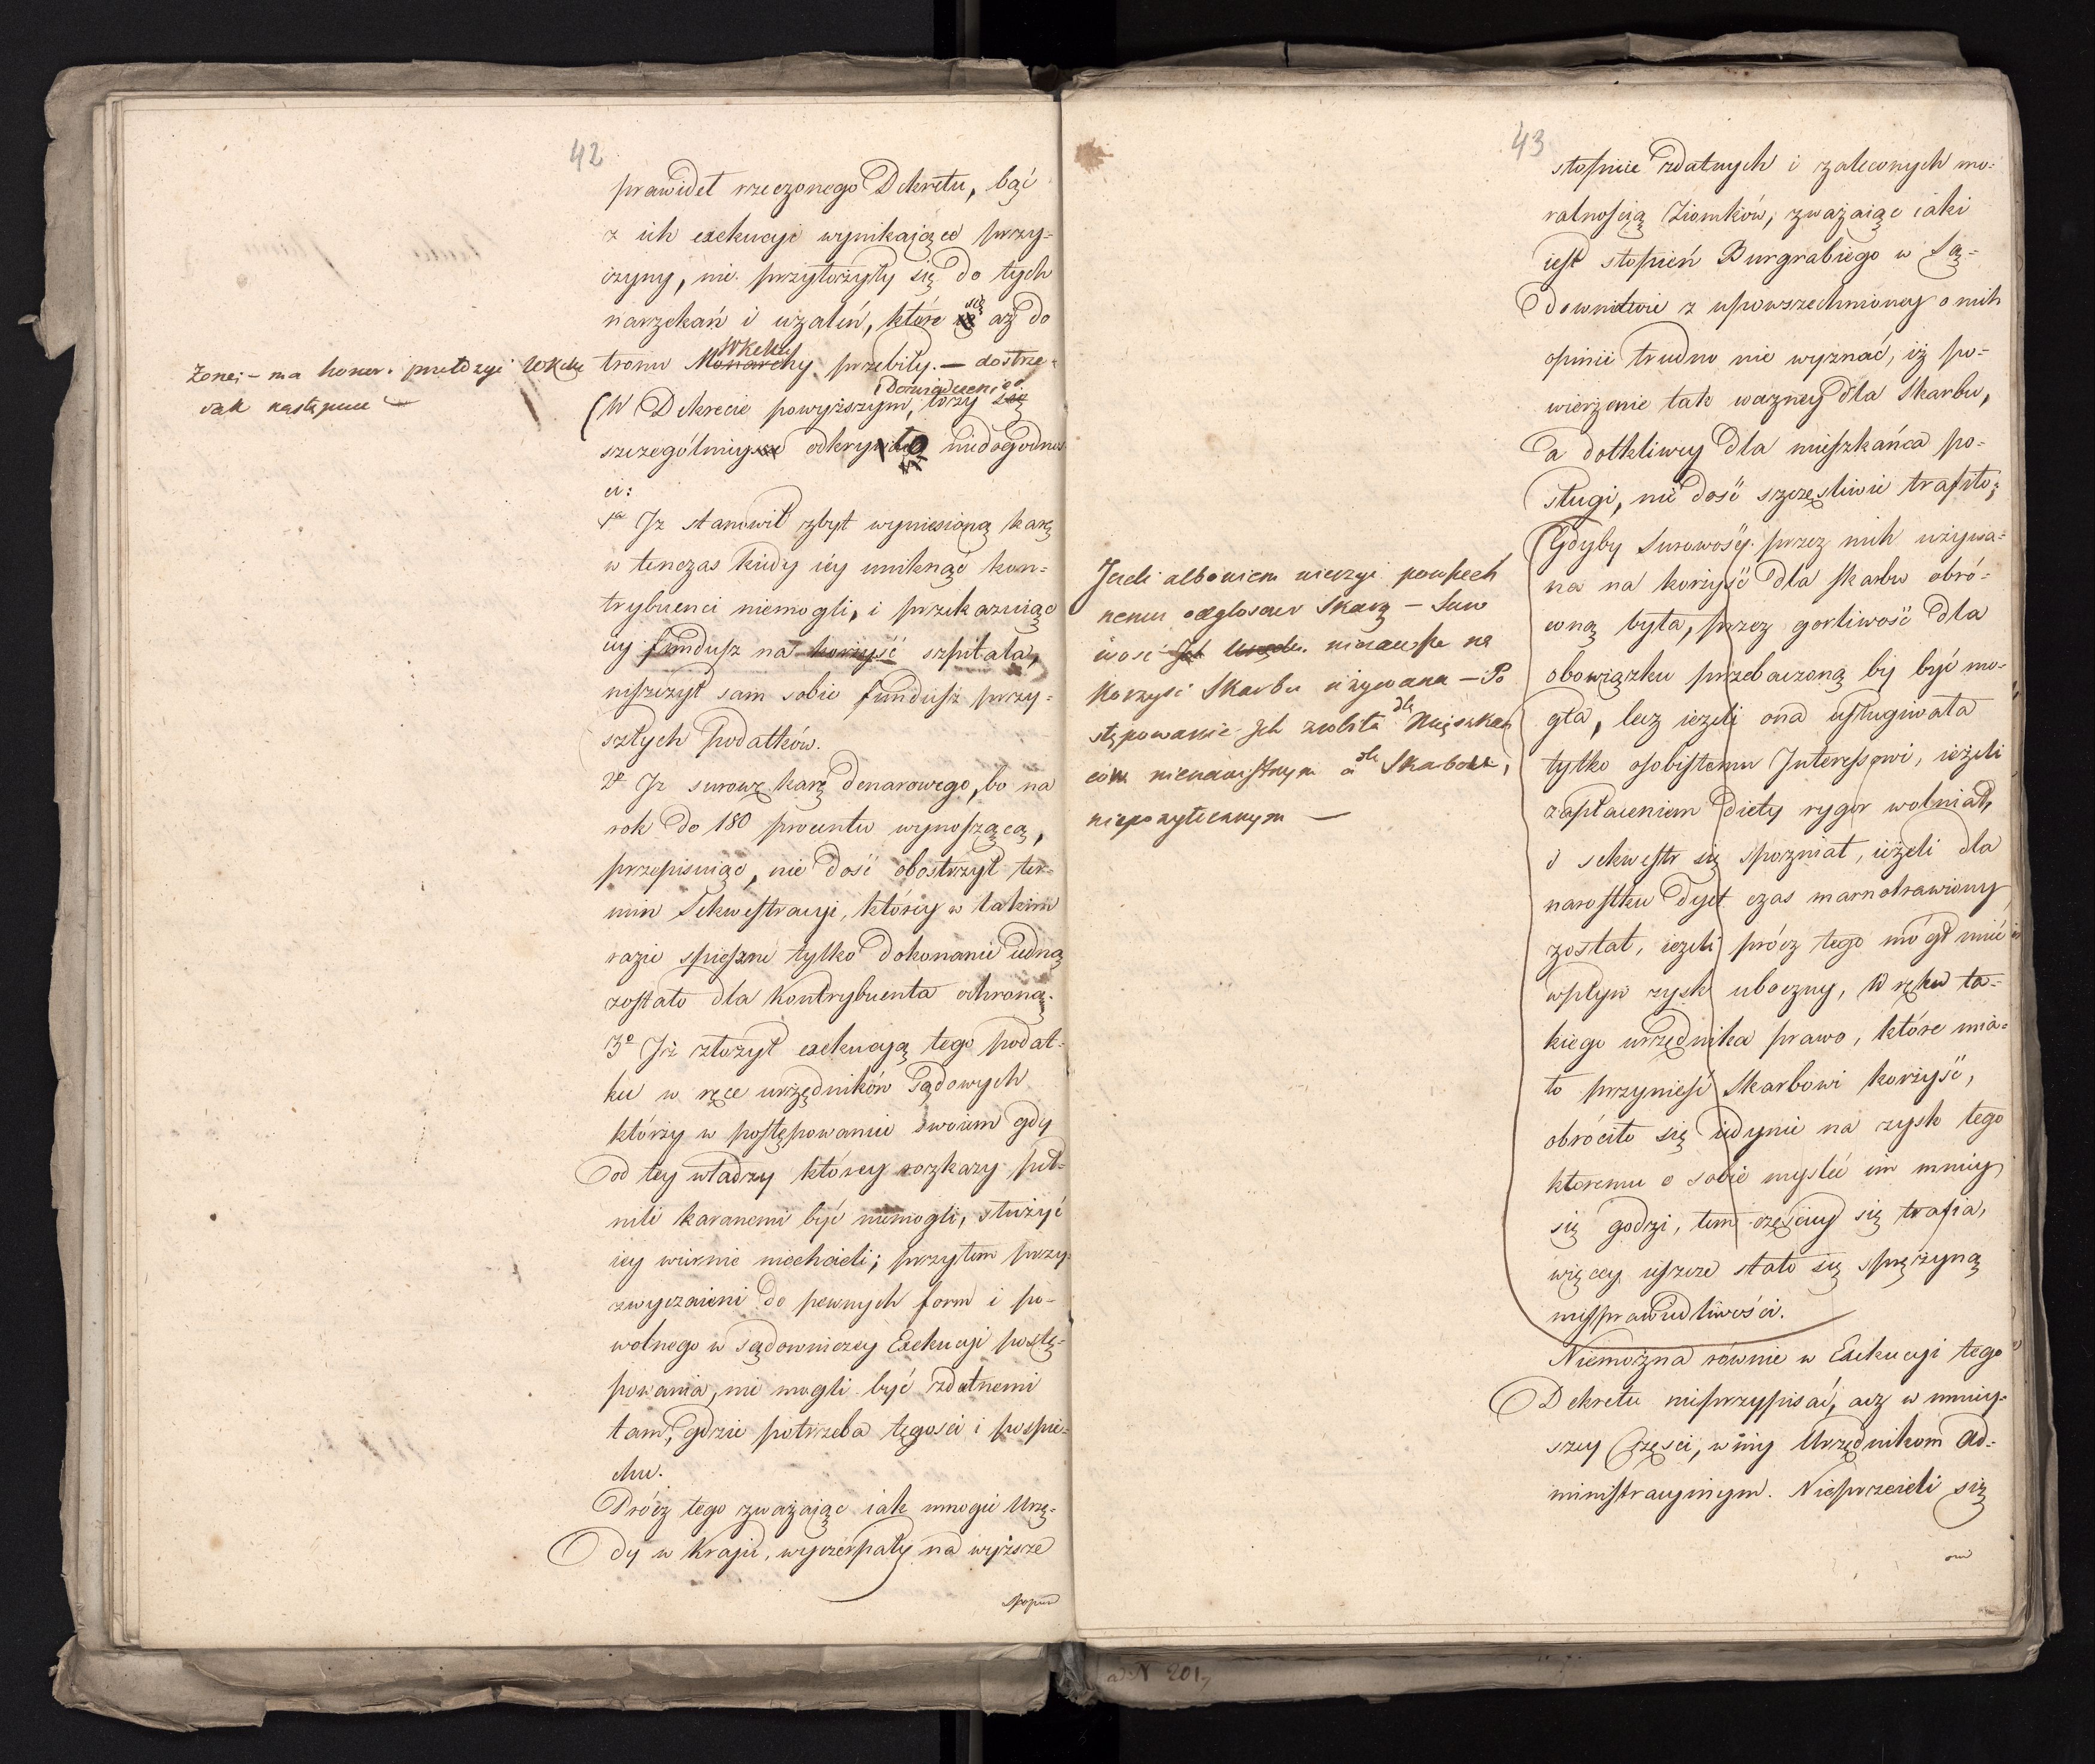 42
prawideł rzeczonego Dekretu, bąć
z ich exekucyi wynikaiące przy-
czyny, nie przyłożyły się do tych
narzekań i użaleń, które się aż do
tronu Monarchy WKMci przebiły. — dostrze-
Zonei - ma honor. przełożyć WKMci
iak następuie
(W Dekrecie powyższym, któży się doświadczenie
szczególniysze odkryło niedogodnoś
ci:
1o Iż stanowił zbyt wyniesioną karę
w tenczas kiedy iey uniknąć kon-
trybuenci niemogli, i przekazuiąc
iey fundusz na korzyść szpitala,
niszczył sam sobie fundusz przy-
szłych podatków.
2o Iż surowę karę denarowego, bo na
rok do 180 procentu wynoszącą,
przepisuiąc, nie dość obostrzył ter-
min Sekwestracyi, którey w takim
razie spieszne tylko dokonanie iedną
zostało dla kontrybuenta ochroną.
3o Iż złożył exekucyą tego podat-
ku w ręce urzędników Sądowych
którzy w postępowaniu swoiem gdy
od tey władzy którey rozkazy peł-
nili karanemi być niemogli, służyć
iey wiernie niechcieli; przytem przy-
zwyczaieni do pewnych form i po-
wolnego w sądowniczey Exekucyi postę-
powania, nie mogli być zdatnemi
tam, gdzie potrzeba tęgości i pospie-
chu.
Prócz tego zważaiąc iak mnogie Urzę-
dy w kraju, wyczerpały na wyższe
stopnie
43
stopnie zdatnych i zaleconych mo-
ralnością Ziomków, zważaiąc iaki
iest stopień Burgrabiego w Są-
downictwie z upowszechnioney o nich
opinii trudno nie wyznać, iż po-
wierzenie tak ważney dla Skarbu,
a dotkliwey dla mieszkańca po-
sługi, nie dość szczęśliwie trafiło;
(Gdyby Surowość przez nich używa-
na na korzyść dla skarbu obró-
coną była, przez gorliwość dla
obowiązku przebaczoną by być mo-
gła, lecz ieżeli ona usługiwała
tylko osobistemu Interessowi, ieżeli
zapłaceniem diety rygor wolniał,
i sekwestr się spozniał, ieżeli dla
narostku dyet czas marnotrawiony
został, ieżeli prócz tego mógł mieć
wpływ zysk uboczny, W ręku ta-
kiego urzędnika prawo, które mia-
ło przynieść Skarbowi korzyść,
obróciło się iedynie na zysk tego
ktoremu o sobie mysleć im mniey
się godzi, tem częściey się trafia,
więcey ieszcze stało się sprężyną
niesprawiedliwości.
Niemożna równie w Exekucyi tego
Dekretu nieprzypisać, acz w mniey-
szey części, winy Urzędnikom Ad-
ministracyinym. Nieprzeieli się
Jeżeli albowiem wierzyć powszech
nemu odgłosowi Skarg — Suro
wość Ich niezawsze na
korzyść Skarbu używana — Po
stępowanie Ich zrobiła dla Mięszkań
ców nienawistnym a dla Skarbu,
niepożytecznym —
ad N 201,